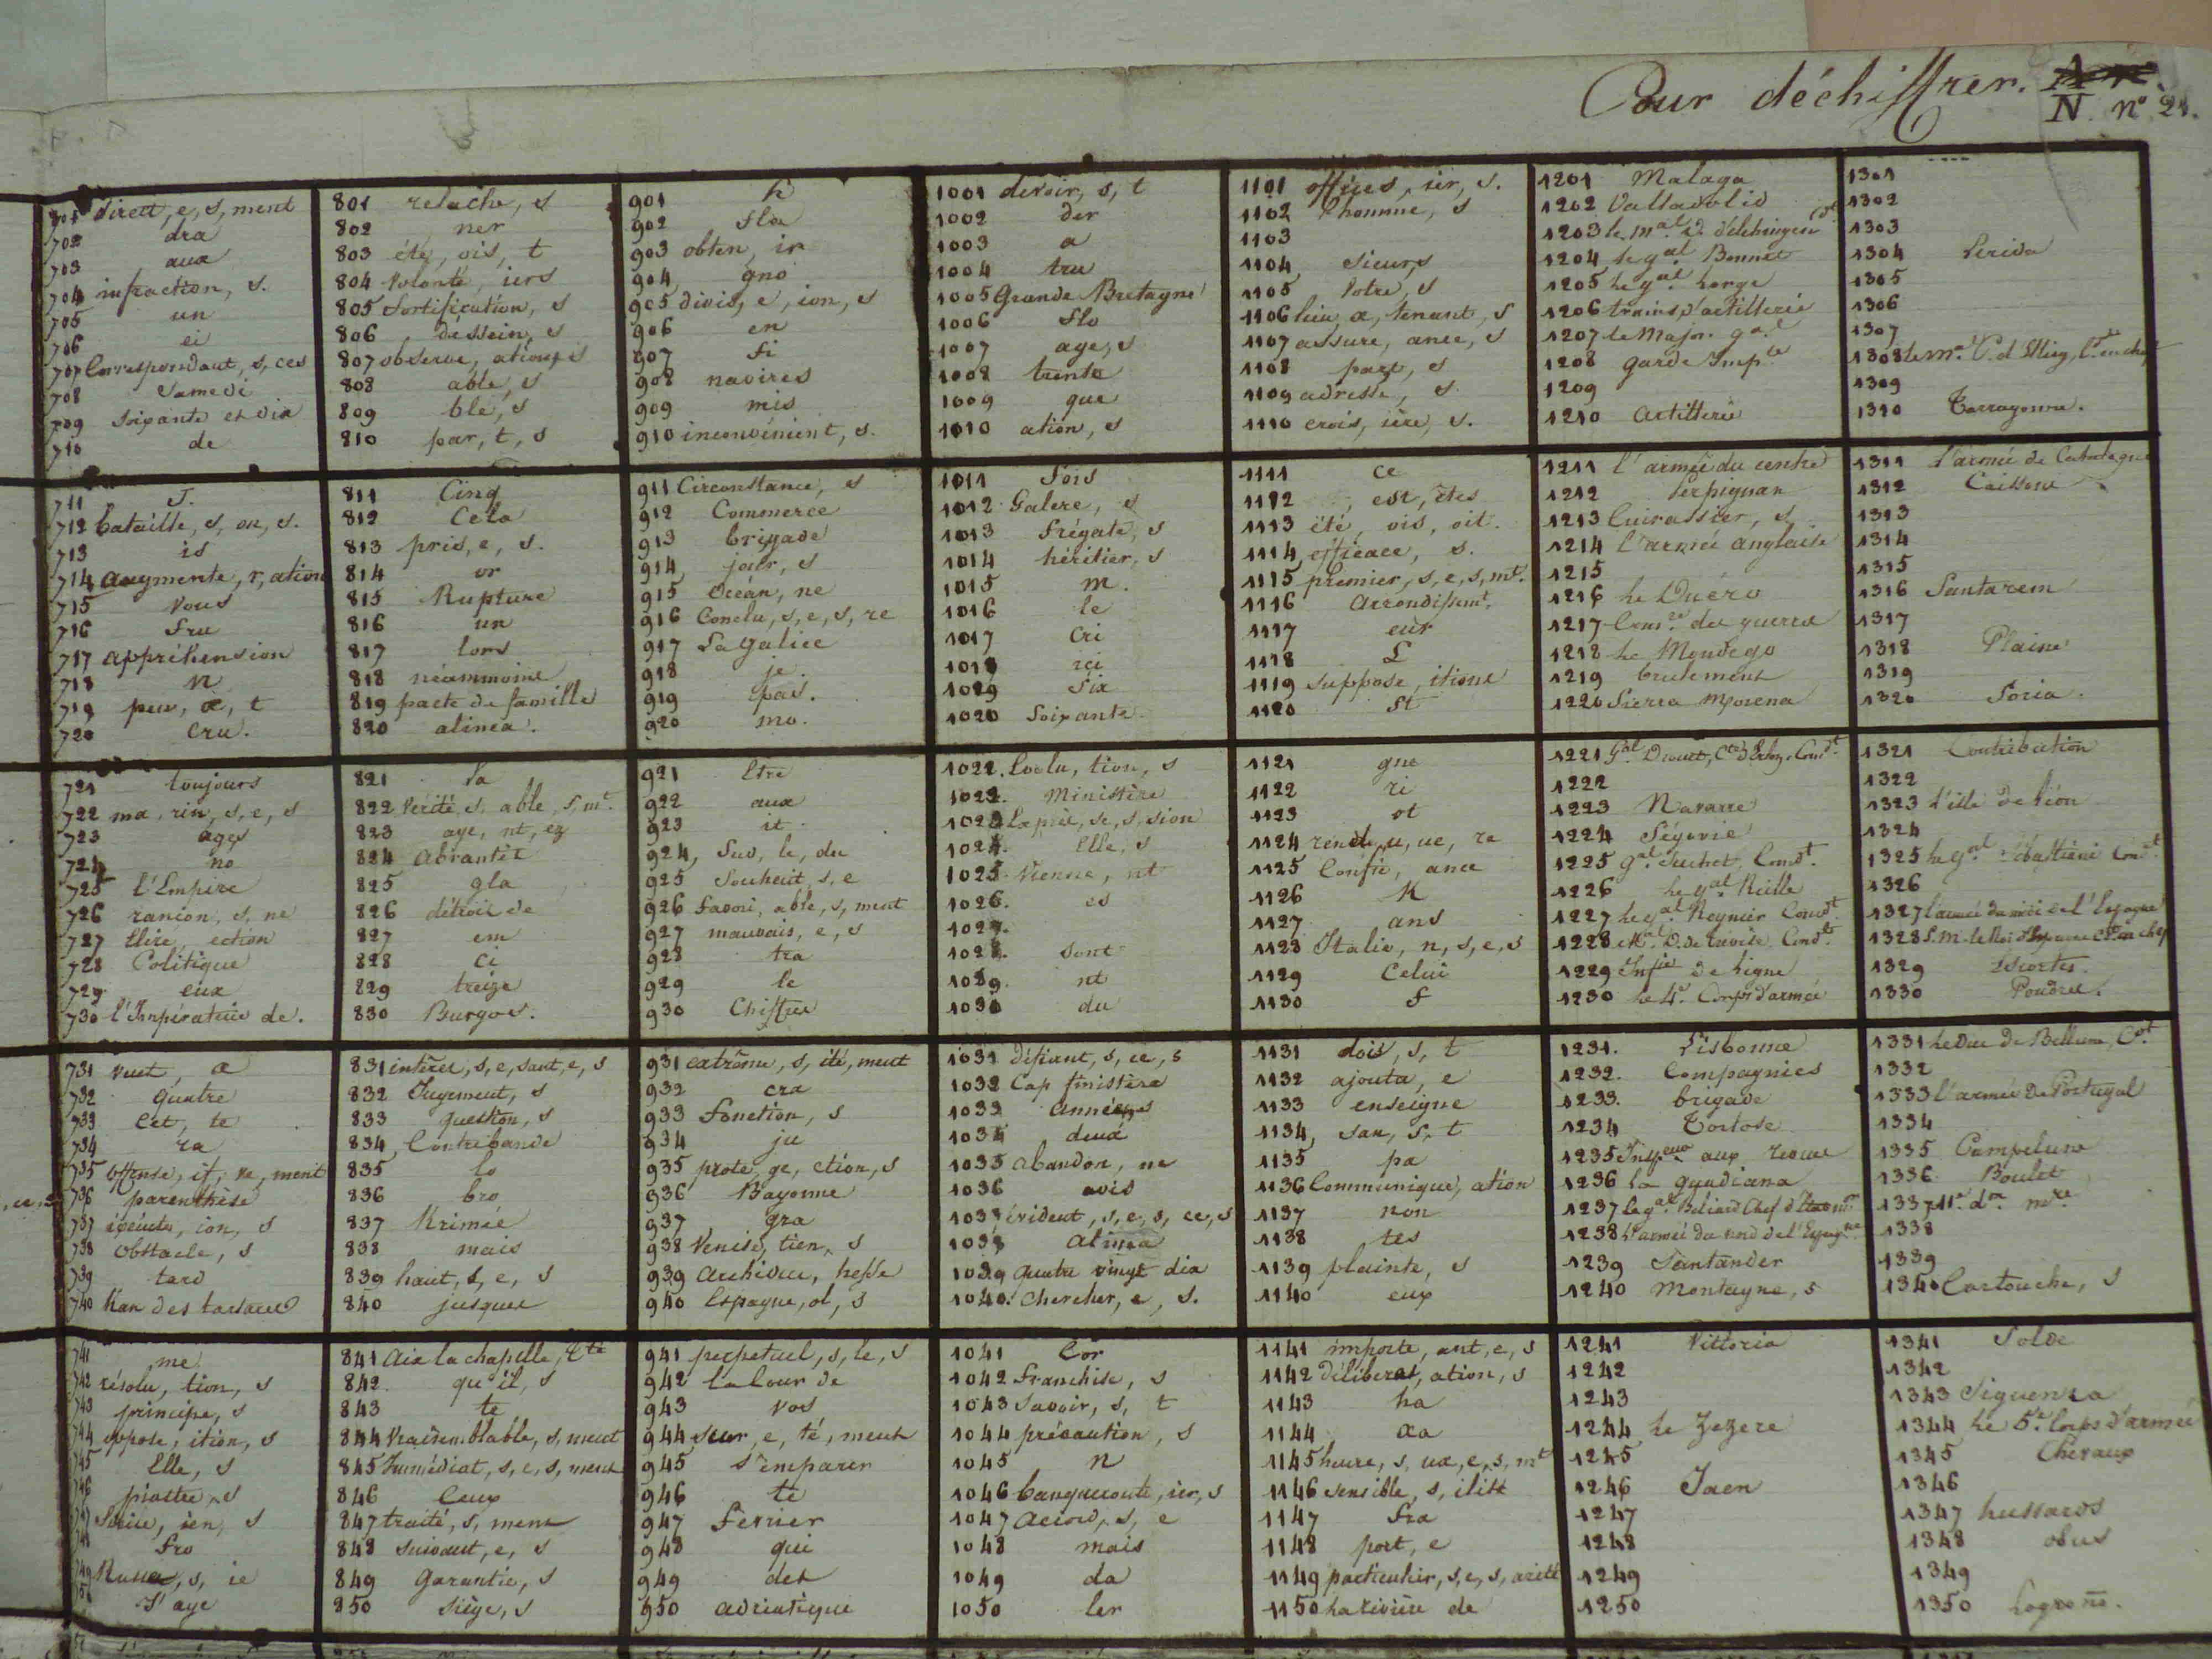 Pour déchiffrer. N. n° 21.
701 direct, e, s, ment
702 dra
703 aux
704 infraction, s.
705 un
706 ei
707 Correspondant, s, ces
708 Samedi
709 Soixante et dix
710 de
711 J.
712 bataille, s, on, s.
713 is
714 augmente, r, ation
715 vous
716 fru
717 appréhension
718 N
719 peu, x, t
720 cru.
721 toujours
722 ma, rin, s, e, s
723 ages
724 no
725 l'Empire
726 rançon, s, ne
727 Elire, ection
728 Politique
729 eux
730 l'Impératrice de.
731 veut, x
732 quatre
733 Cet, te
734 ra
735 offense, if, ve, ment
736 parenthèse
737 exécute, ion, s
738 Obstacle, s
739 tard
740 kan des tartares
741 me
742 résolu, tion, s
743 principe, s
744 oppose, ition, s
745 Elle, s
746 piastre, s
748 fro
749 Russe, s, ie
750 S'aye
801 relache, s
802 ner
803 été, ois, t
804 volonté, iers
805 fortification, s
806 dessein, s
807 observe, ations
808 able, s
809 blé, s
810 par, t, s
811 Cinq
812 Cela
813 pris, e, s.
814 or
815 Rupture
816 un
817 lors
818 néammoins
819 pacte de famille
820 alinea.
821 Va
822 Vérité, s, able, s, mt.
823 aye, nt, ez
824 Abrantès
825 gla
826 détroit de
827 em
828 ci
829 treize
830 Burgos.
831 intérêt, s, e, sant, e, s
832 Jugement, s
833 question, s
834 Contrebande
835 lo
836 bro
837 Krimée
838 mais
839 haut, s, e, s
840 jusques
841 Aix la chapelle, Tté
842 qu'il, s
843 te
844 Vraisemblable, s, ment
845 Immédiat, s, e, s, ment
846 Ceux
847 traité, s, ment
848 suivant, e, s
849 Garantie, s
850 siège, s
901 h
902 fla
903 obten, ir
904 gno
905 divis, e, ion, s
906 en
907 fi
908 navires
909 mis
910 inconvénient, s.
911 Circonstance, s
912 Commerce
913 brigade
914 jour, s
915 Océan, ne
916 Conclu, s, e, s, re
917 La galice
918 je
919 pas.
920 mo.
921 Etre
922 aux
923 it
924 Sud, le, du
925 Souhait, s, e
926 favori, able, s, ment
927 mauvais, e, s
928 tra
929 le
930 Chiffres
931 extrême, s, ité, ment
932 cra
933 fonction, s
934 ju
935 prote, ge, ction, s
936 Bayonne
937 gra
938 Venise, tien, s
939 archiduc, hesse
940 Espagne, ol, s
941 perpetuel, s, le, s
942 la Cour de
943 vos
944 seur, e, té, ment
945 s'emparer
946 té
947 Février
948 qui
949 det
950 adriatique
1001 devoir, s, t
1002 der
1003 a
1004 tru
1005 Grande Bretagne
1006 flo
1007 aye, s
1008 trente
1009 que
1010 ation, s
1011 fois
1012 Galere, s
1013 frégate, s
1014 héritier, s
1015 m.
1016 le
1017 cri
1018 rei
1019 Six
1020 Soixante
1022. Ministère
1024. Elle, s
1025. Vienne, nt
1026. es
1027.
1028. sont
1029. nt
1030 du
1031 défiant, s, ce, s
1032 Cap finistère
1033 années
1034 deux
1035 abandon, ne
1036 avis
1037 évident, s, e, s, ce, s
1038 alinea
1039 quatre vingt dix
1040. Chercher, e, s.
1041 Cor
1042 franchise, s
1043 Savoir, s, t
1044 précaution, s
1045 N
1046 banqueroute, ier, s
1047 accord, s, e
1048 mais
1049 da
1050 ler
1101 offices, ier, s.
1102 l'homme, s
1103
1104 Sieurs
1105 Votre, s
1106 lieu, x, tenant, s
1107 assure, ance, s
1108 part, s
1109 adresse, s.
1110 crois, ière, s.
1111 ce
1112 est, êtes
1113 été, ois, oit.
1114 efficace, s.
1115 premier, s, e, s, mt.
1116 arrondissemt.
1117 eur
1118 L
1119 suppose, itions
1120 St
1121 gne
1122 ri
1123 ot
1124 rendu, ue, re
1125 Confie, ance
1126 K
1127 ans
1128 Italie, n, s, e, s
1129 Celui
1130 f
1131 dois, s, t
1132 ajouta, e
1133 enseigne
1134 san, s, t
1135 pa
1136 Communique, ation
1137 non
1138 tes
1139 plainte, s
1140 eux
1141 importe, ant, e, s
1142 délibérat, ation, s
1143 ha
1144 xa
1145 heure, s, ux, e, s, mt
1146 sensible, s, ilité
1147 fra
1148 port, e
1149 particulier, s, e, s, arité
1150 la rivière de
1201 Malaga
1202 Valladolid
1203 le Mal. D. d'Elchingen Cdt.
1204 le gal Bonnet
1205 le gal. Lorge
1206 trains d'artillerie
1207 le Major gal
1208 garde Imple
1209
1210 artillerie
1211 l'armée du centre
1212 Perpignan
1213 Cuirassier, s
1214 l'armée anglaise
1215
1216 le Duéro
1217 Comre des guerres
1218 le Mondego
1219 brulement
1220 Sierra Morena
1221 Gal Drouet, Cte d'Erlon, Comdt
1222
1223 Navarre
1224 Ségovie
1225 gal. Suchet, Comdt.
1226 le gal Reille
1227 le gal. Reynier Comdt
1228 Mal. D. de trévise Comdt.
1229 Infie de ligne
1230 le 4e. Corps d'armée
1231. Lisbonne
1232. Compagnies
1233. brigade
1234 Tortose
1235 Inspeurs aux revues
1236 la guadiana
1237 le gal. Beliard Chef d'Etat mor
1238 L'armée du nord de l'Espagne
1239 Santander
1240 Montagne, s
1241 Vittoria
1242
1243
1244 le Zezere
1245
1246 Jaen
1247
1248
1249
1250
1301
1302
1303
1304 Lerida
1305
1306
1307
1309
1310 Tarragonne.
1311 l'armée de Catalogne
1312 Caissons
1313
1314
1315
1316 Santarem
1317
1318 Plaine
1319
1320 Soria.
1321 Contribution
1322
1323 l'isle de Léon
1324
1325 le gal Sébastiani Comdt
1326
1327 l'armée du midi de l'Espagne
1328 S. M. le Roi d'Espagne Ct. en chef
1329 Escortes.
1330 Poudres.
1331 le Duc de Bellune, Ct.
1332
1333 l'armée de Portugal
1334
1335 Pampelune
1336 Boulet
1338
1339
1340 Cartouche, s
1341 Solde
1342
1343 Siguenza
1344 le 5e. Corps d'armée
1345 Chevaux
1346
1347 hussards
1348 obus
1349
1350 Logroño.